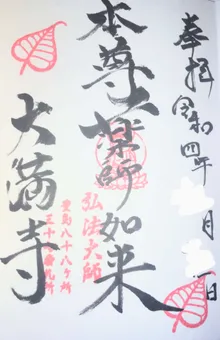 奉拝 令和四年 月 日
本尊 薬師如来
弘法大師
豊島八十八ヶ所
三十 番札所
大満寺